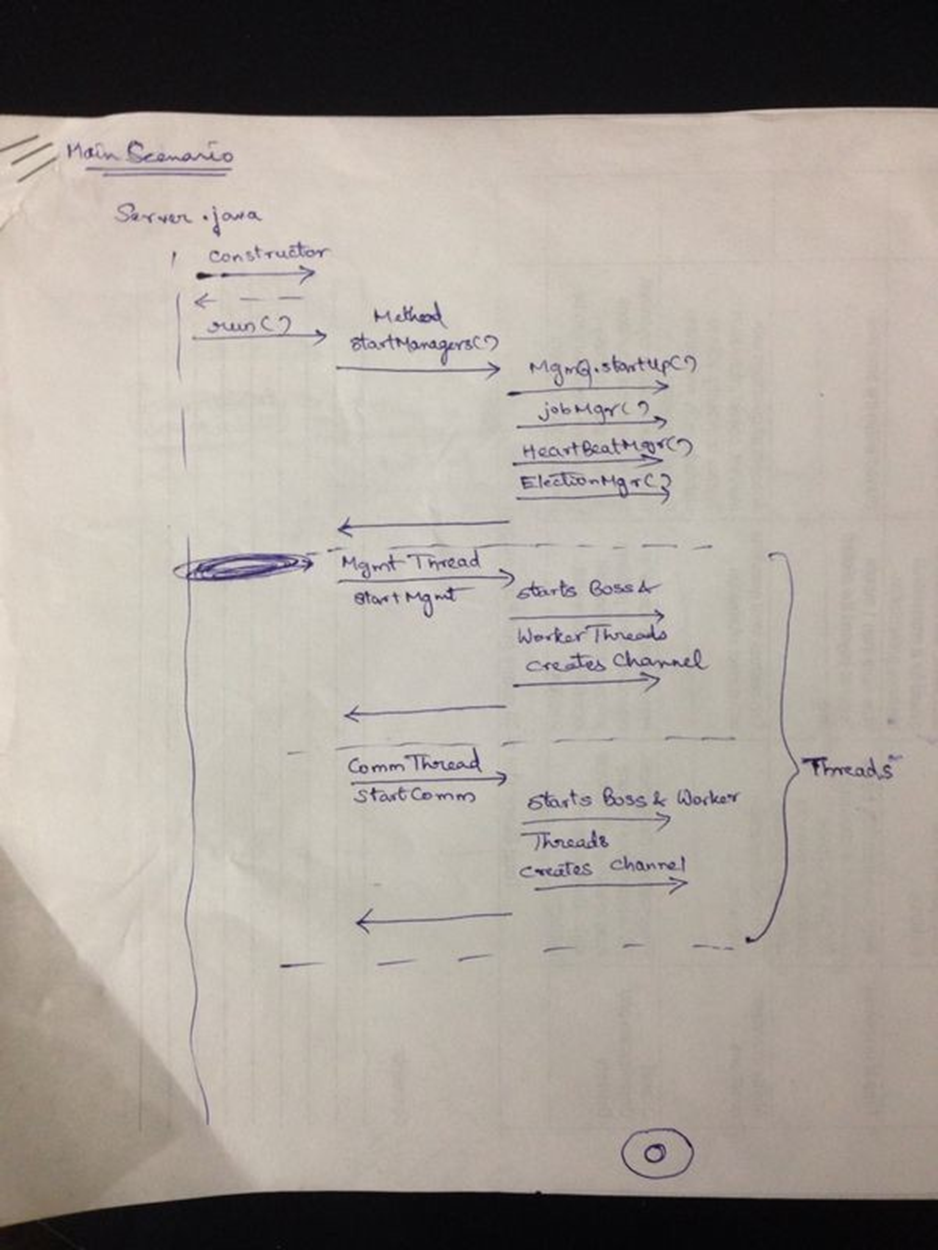 Main Scenario
Server.java
constructor
run()
Method
startManagers()
MgmQ.startUp()
jobMgr()
HeartBeatMgr()
ElectionMgr()
Mgmt Thread
StartMgmt
starts Boss &
Worker Threads
creates Channel
Comm Thread
StartComm
starts Boss & Worker
Threads
creates channel
Threads
0